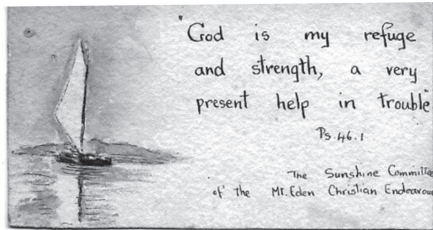 "God is my refuge
and strength, a very
present help in trouble"
Ps. 46. 1
The Sunshine Committee
of the Mt. Eden Christian Endeavour